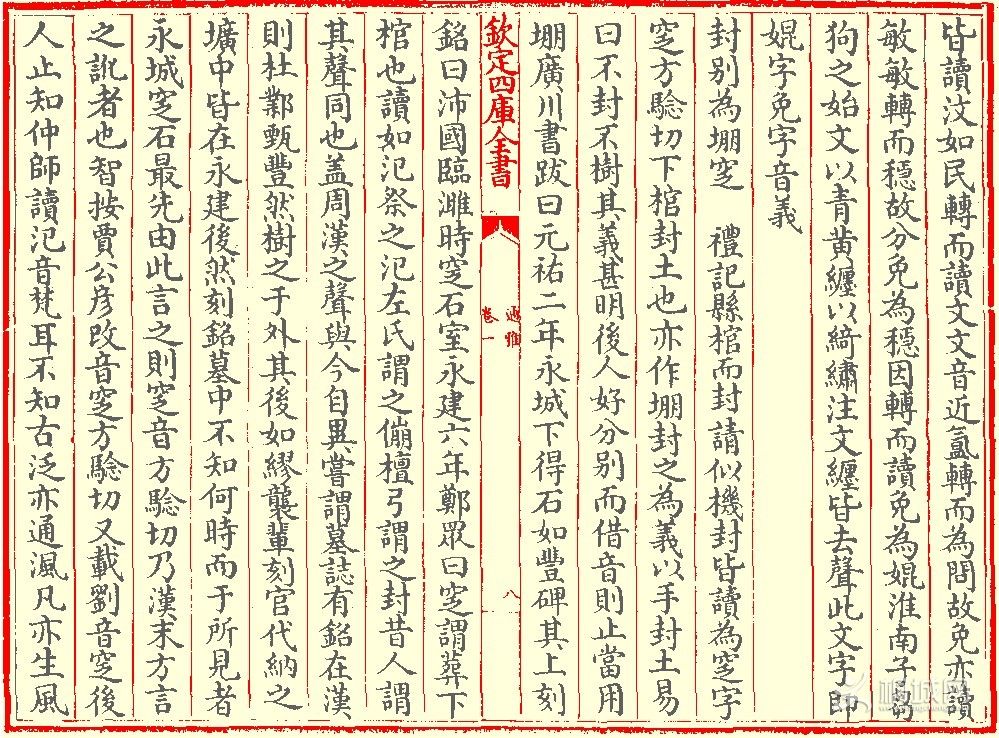 皆讀汶如民轉而讀文文音近氲轉而為問故免亦讀
敏敏轉而穩故分免為穩因轉而讀免為娩淮南子芻
狗之始文以青黄纏以綺繡注文纏皆去聲此文字即
娩字免字音義
封别為堋窆　禮記縣棺而封請似機封皆讀為窆字
窆方驗切下棺封土也亦作堋封之為義以手封土易
曰不封不樹其義甚明後人好分别而借音則止當用
堋廣川書跋曰元祐二年永城下得石如豐碑其上刻
欽定四庫全書
通雅
卷一
八
銘曰沛國臨濉時窆石室永建六年鄭眾曰窆謂葬下
棺也讀如氾祭之氾左氏謂之傰檀弓謂之封昔人謂
其聲同也盖周漢之聲與今自異嘗謂墓誌有銘在漢
則杜鄴甄豐然樹之于外其後如繆襲輩刻官代納之
壙中皆在永建後然刻銘墓中不知何時而于所見者
永城窆石最先由此言之則窆音方驗切乃漢末方言
之訛者也智按賈公彦改音窆方驗切又載劉音窆後
人止知仲師讀氾音梵耳不知古泛亦通渢凡亦生風